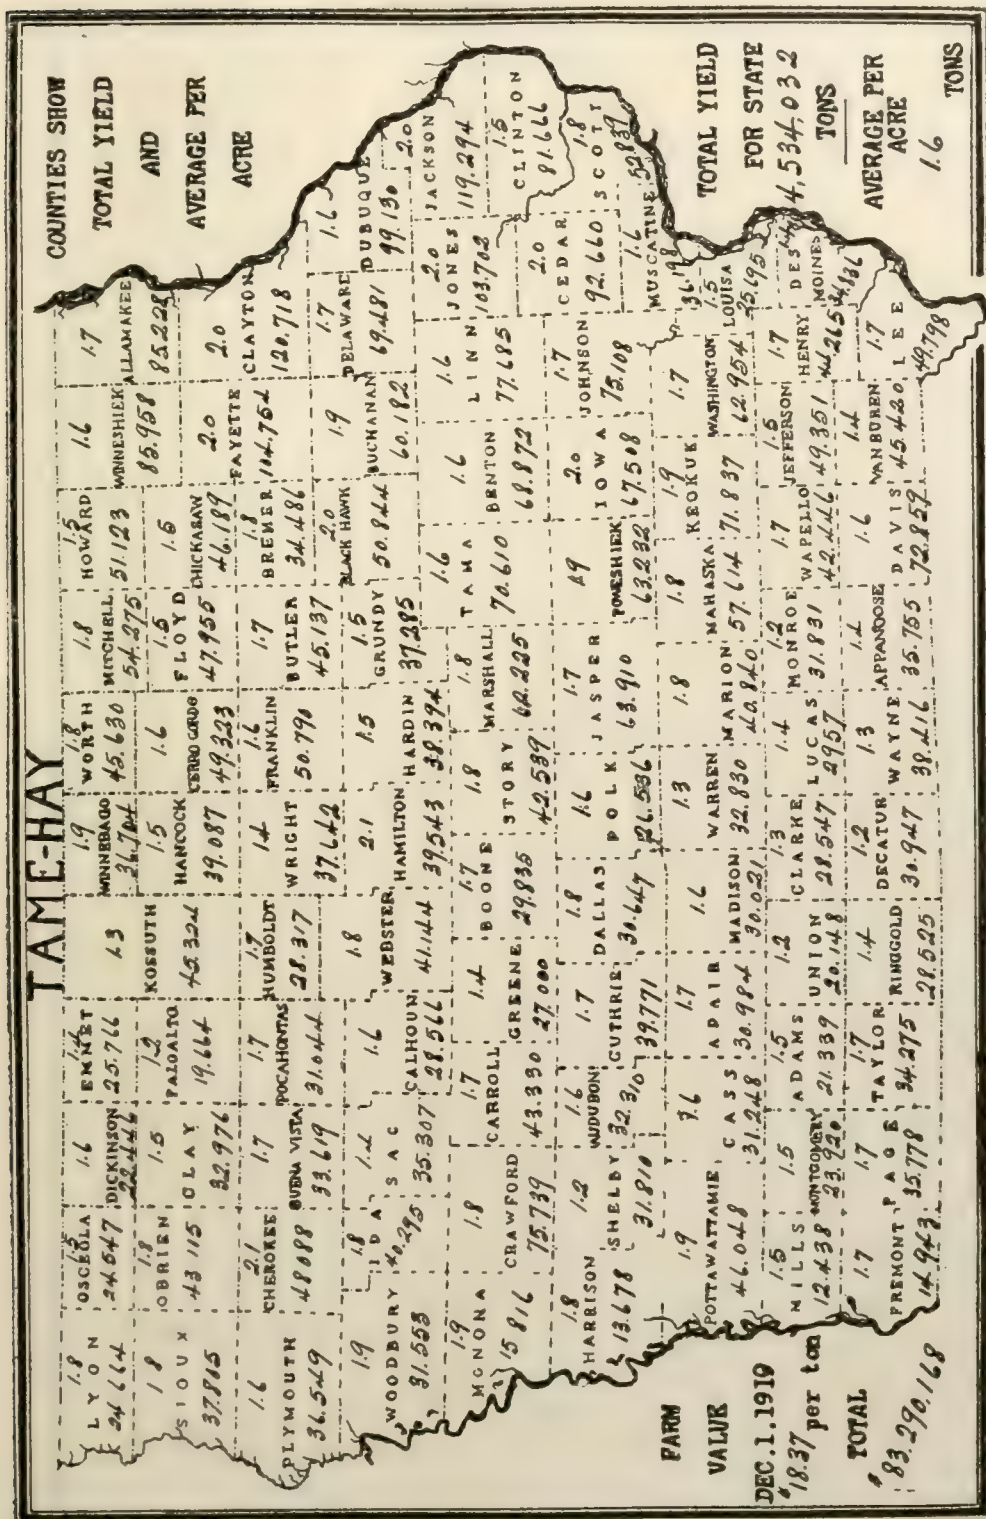 TAME-HAY
COUNTIES SHOW
TOTAL YIELD
AND
AVERAGE PER
ACRE
1.8
LYON
24664
1.5
OSCEOLA
24547
1.6
DICKINSON
22446
1.4
EMMET
25.766
1.3
KOSSUTH
45.324
1.9
WINNEBAGO
1.8
WORTH
45.630
1.8
MITCHELL
54.275
1.5
HOWARD
51.123
1.6
WINNESHIEK
85.958
1.7
ALLAMAKEE
85.228
1 8
SIOUX
37.815
1.8
OBRIEN
43 115
1.5
CLAY
32.976
1.2
PALOALTO
19.664
1.5
HANCOCK
39.087
1.6
CERRO GORDO
49.323
1.5
FLOYD
47.955
1.5
CHICKASAW
46.189
2.0
FAYETTE
104.754
2.0
CLAYTON
120.718
1.6
PLYMOUTH
36.549
2.1
CHEROKEE
48088
1.7
BUENA VISTA
33.619
1.7
POCAHONTAS
31.044
1.7
HUMBOLDT
28.317
1.4
WRIGHT
37.642
1.6
FRANKLIN
50.790
1.7
BUTLER
45.137
1.8
BREMER
34.486
1.9
WOODBURY
31.553
1.8
IDA
40.295
1.4
SAC
35.307
1.6
CALHOUN
28.566
1.8
WEBSTER
41.144
2.1
HAMILTON
39.543
1.5
HARDIN
38.394
1.5
GRUNDY
37.285
2.0
BLACK HAWK
50.844
1.9
BUCHANAN
60.182
1.7
DELAWARE
69.481
1.6
DUBUQUE
99.130
1.9
MONONA
15 816
1.8
CRAWFORD
75.739
1.7
CARROLL
43.330
1.4
GREENE
27.000
1.7
BOONE
29.835
1.8
STORY
42.539
1.8
MARSHALL
62.225
1.6
TAMA
70.610
1.6
BENTON
68.872
1.6
LINN
77.685
2.0
JONES
103.702
2.0
JACKSON
119.294
1.8
HARRISON
13.678
1.2
SHELBY
31.810
1.6
AUDUBON
32.310
1.7
GUTHRIE
39.771
1.8
DALLAS
30.647
1.6
POLK
26.536
1.7
JASPER
63.910
1.9
POWESHIEK
63.232
2.0
IOWA
67.508
1.7
JOHNSON
75.108
2.0
CEDAR
92.660
1.5
CLINTON
81.666
1.8
SCOTT
52.839
1.6
MUSCATINE
36.198
1.9
POTTAWATTAMIE
46.048
1.6
CASS
31.248
1.7
ADAIR
30.984
1.6
MADISON
30.021
1.3
WARREN
32.830
1.8
MARION
40.840
1.8
MAHASKA
57.614
1.9
KEOKUK
71.837
1.7
WASHINGTON
62.954
1.5
LOUISA
25.195
1.5
MILLS
12.438
1.5
MONTGOMERY
23.920
1.5
ADAMS
21.339
1.2
UNION
20.148
1.3
CLARKE
28.547
1.4
LUCAS
2957
1.2
MONROE
31.831
1.7
WAPELLO
42.446
1.5
JEFFERSON
49.351
1.7
HENRY
44.265
1.4
DES MOINES
34.836
1.7
FREMONT
14.943
1.7
PAGE
35.778
1.7
TAYLOR
34.275
1.4
RINGGOLD
28.525
1.2
DECATUR
30.947
1.3
WAYNE
38.416
1.4
APPANOOSE
35.755
1.6
DAVIS
72.859
1.4
VANBUREN
45.420
1.7
LEE
49.798
FARM
VALUE
DEC.1.1919
$18.37 per ton
TOTAL
$83.290.168
TOTAL YIELD
FOR STATE
4,534,032
TONS
AVERAGE PER
ACRE
1.6
TONS